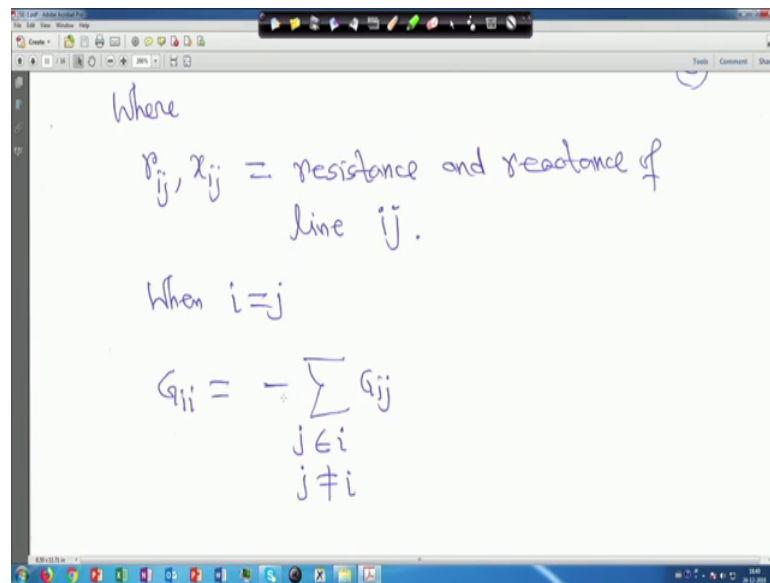 File Edit View Window Help
Create
Tools Comment
Where
r_ij, x_ij = resistance and reactance of
line ij.
When i = j
G_ii = - ∑ G_ij
j ∈ i
j ≠ i